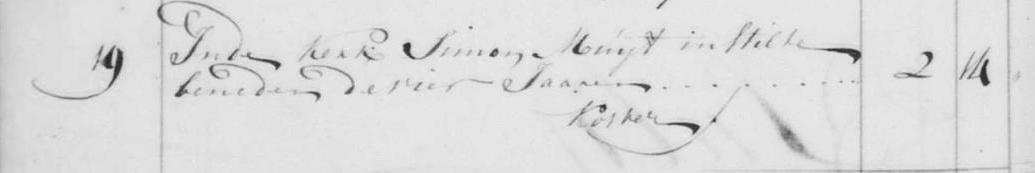 19 Inde kerk Simon Muijt in Stilte
beneden de vier Jaaren . . . . . . . . . 2 14
Koster